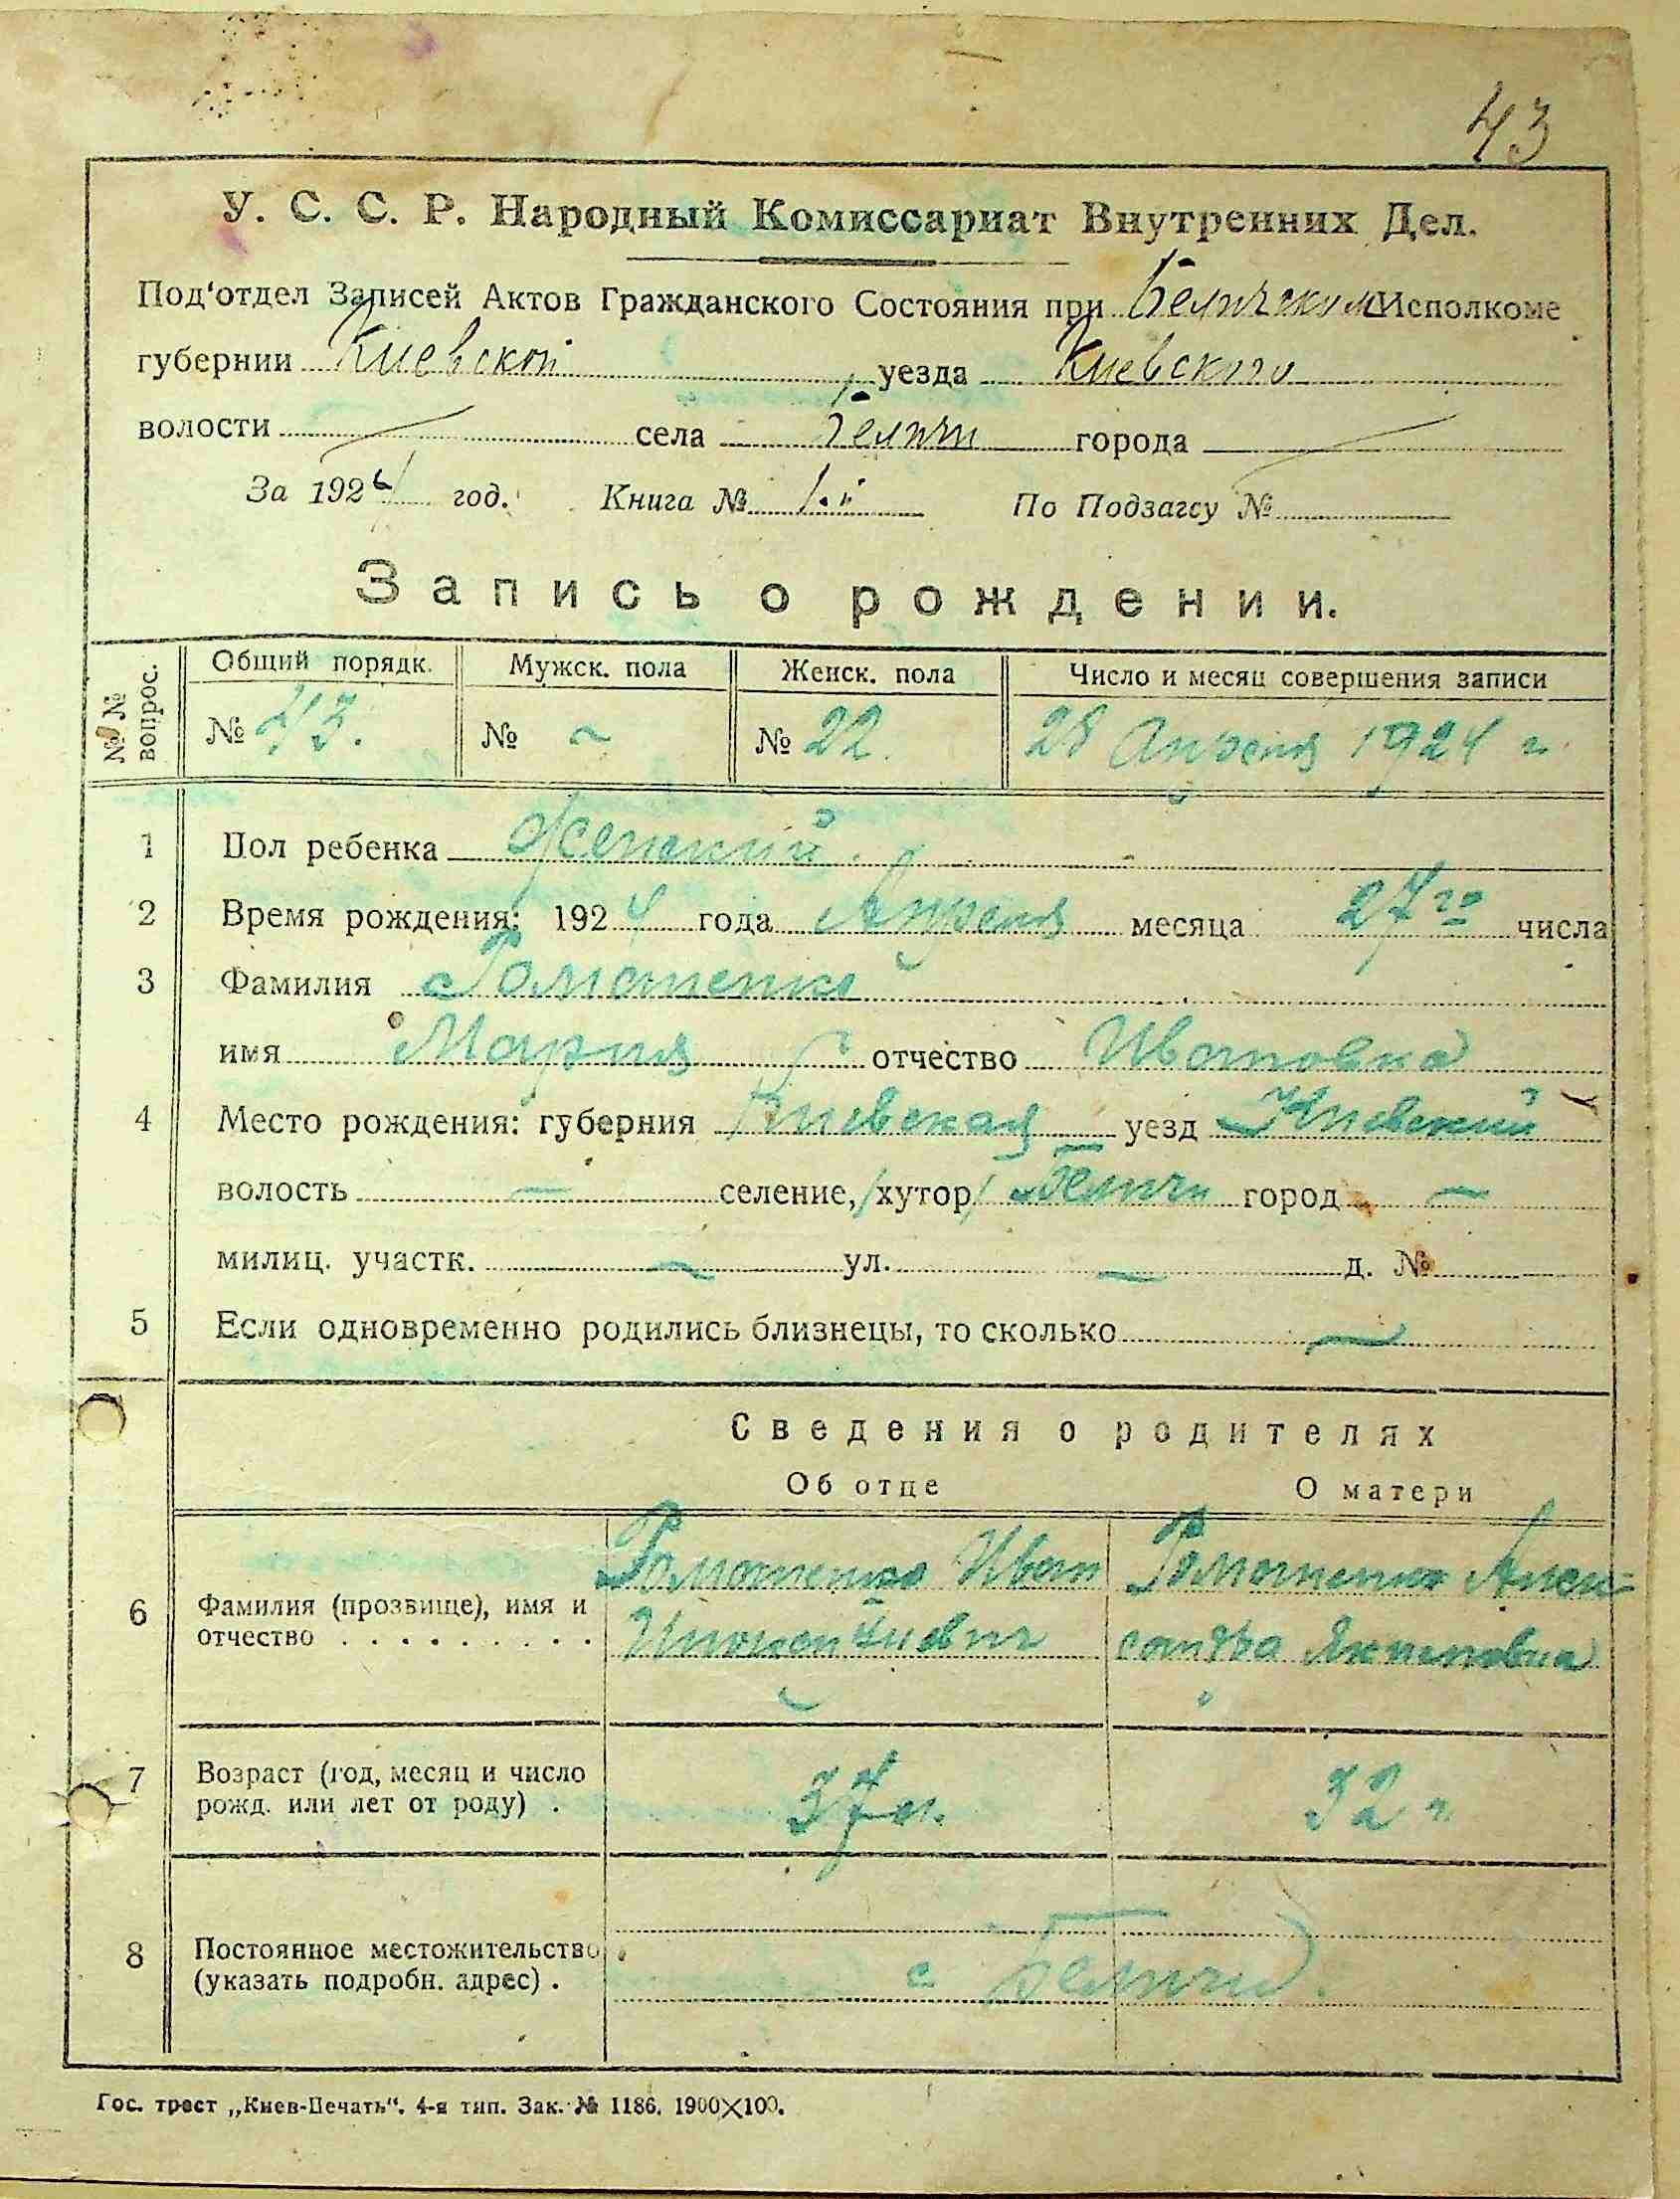 43
У. С. С. Р. Народный Комиссариат Внутренних Дел.
Под'отдел Записей Актов Гражданского Состояния при Беличском Исполкоме
губернии Киевской уезда Киевского
волости — села Беличи города —
За 1924 год. Книга № 1-й По Подзагсу №
Запись о рождении.
№№ вопрос. Общий порядк. Мужск. пола Женск. пола Число и месяц совершения записи
№ 43. № ~ № 22. 28 Апреля 1924 г.
1 Пол ребенка Женский.
2 Время рождения: 1924 года Апреля месяца 27го числа
3 Фамилия Романенко
имя Мария отчество Ивановна
4 Место рождения: губерния Киевская уезд Киевский
волость — селение, /хутор/ Беличи город —
милиц. участк. — ул. — д. №
5 Если одновременно родились близнецы, то сколько —
Сведения о родителях
Об отце О матери
6 Фамилия (прозвище), имя и отчество . . . . . . . . .
Романенко Иван
Романенко Алек-
сандра Якимовна
7 Возраст (год, месяц и число рожд. или лет от роду) .
37 л. 32 г.
8 Постоянное местожительство (указать подробн. адрес) .
с Беличи.
Гос. трест „Киев-Печать“. 4-я тип. Зак. № 1186. 1900×100.